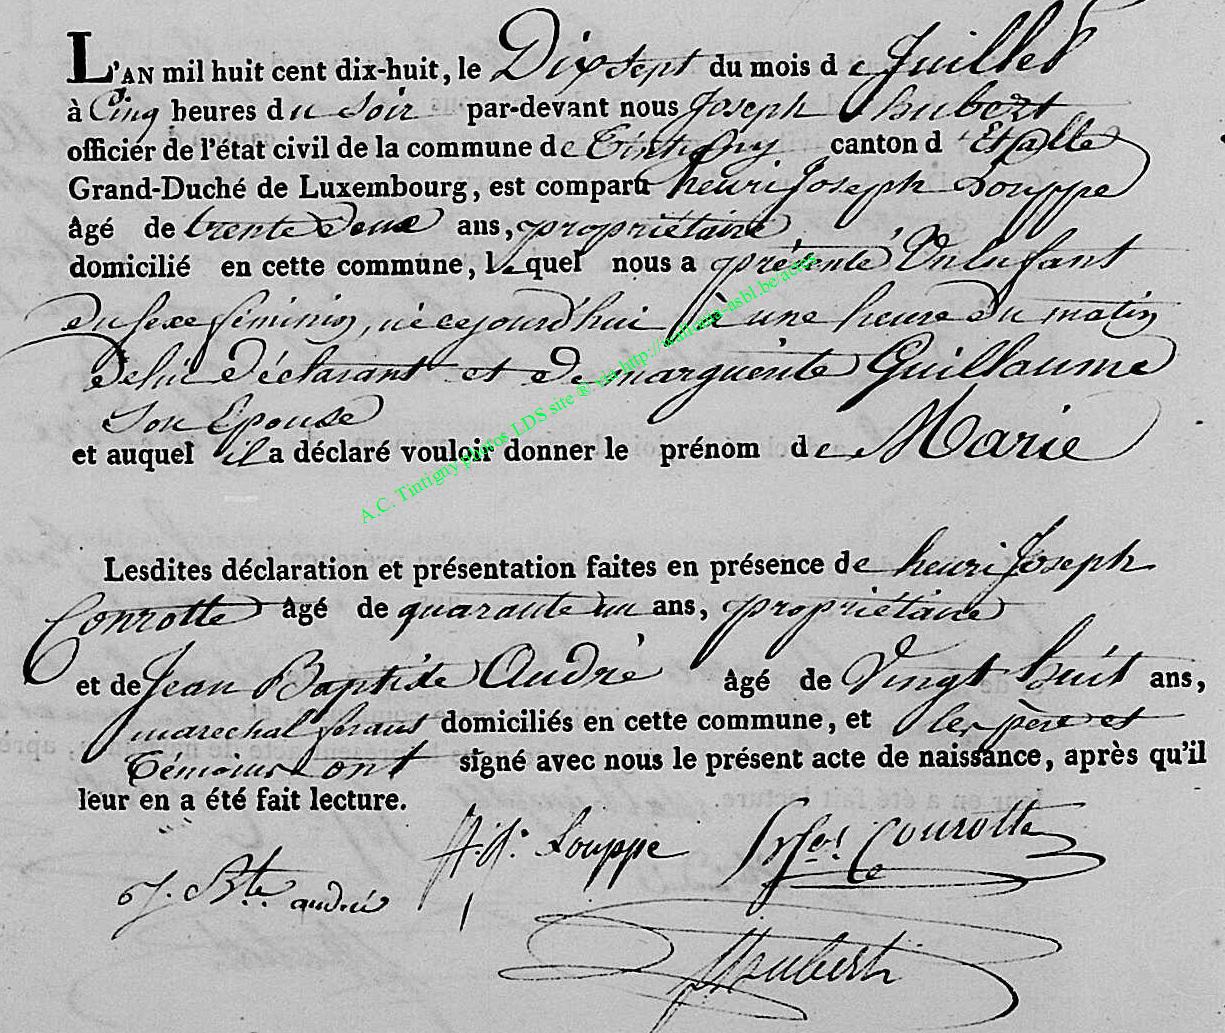 L'AN mil huit cent dix-huit, le Dix sept du mois de Juillet
à Cinq heures du Soir par-devant nous Joseph hubert
officier de l'état civil de la commune de Tintigny canton d'Etalle
Grand-Duché de Luxembourg, est comparu henri Joseph Souppe
âgé de trente deux ans, propriétaire
domicilié en cette commune, lequel nous a présenté Un enfant
du sexe féminin, né cejourd'hui à une heure du matin
de lui déclarant et de marguerite Guillaume
Son Epouse
et auquel il a déclaré vouloir donner le prénom de Marie
A.C. Tintigny photos LDS site ® via http://wallonia-asbl.be/actes
Lesdites déclaration et présentation faites en présence de henri Joseph
Conrotte âgé de quarante un ans, propriétaire
et de Jean Baptiste André âgé de Vingt huit ans,
marechal ferant domiciliés en cette commune, et les père et
Témoins ont signé avec nous le présent acte de naissance, après qu'il
leur en a été fait lecture.
H. J. Souppe Conrotte
J. Bte andré
Hubert